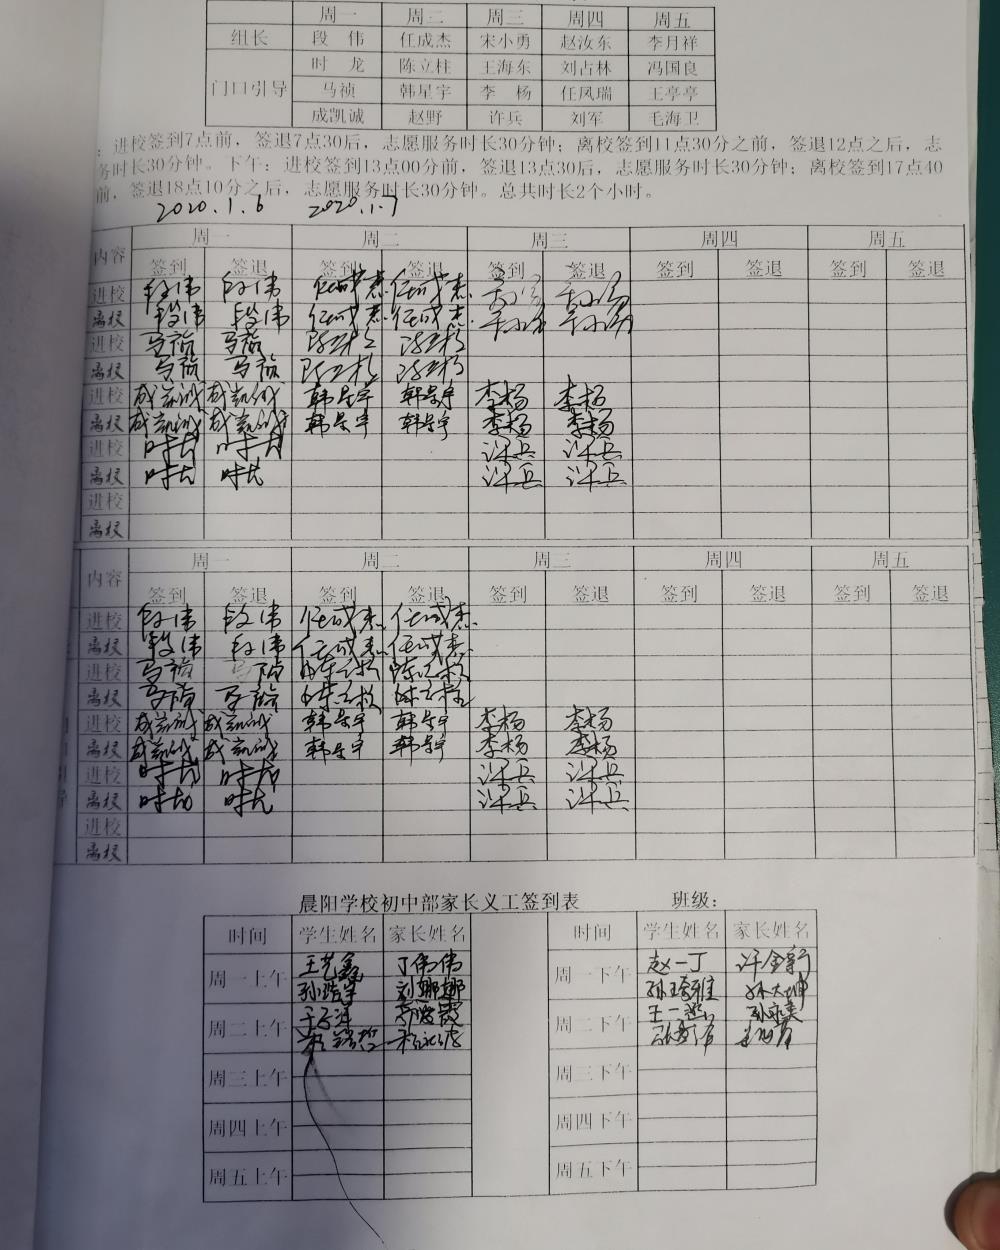 周一 周二 周三 周四 周五
组长 段伟 任成杰 宋小勇 赵汝东 李月祥
门口引导 时龙 陈立柱 王海东 刘占林 冯国良
马祯 韩星宇 李杨 任凤瑞 王亭亭
成凯诚 赵野 许兵 刘军 毛海卫
：进校签到7点前，签退7点30后，志愿服务时长30分钟；离校签到11点30分之前，签退12点之后，志
务时长30分钟。下午：进校签到13点00分前，签退13点30后，志愿服务时长30分钟；离校签到17点40
前，签退18点10分之后，志愿服务时长30分钟。总共时长2个小时。
2020.1.6 2020.1.7
内容 周一 周二 周三 周四 周五
签到 签退 签到 签退 签到 签退 签到 签退 签到 签退
进校 段伟 段伟 任成杰 任成杰
离校 段伟 段伟 任成杰 任成杰
进校 马祯 马祯 陈立柱 陈立柱
离校 马祯 马祯 陈立柱 陈立柱
进校 成凯诚 成凯诚 韩星宇 韩星宇 李杨 李杨
离校 成凯诚 成凯诚 韩星宇 韩星宇 李杨 李杨
进校 时龙 时龙 许兵 许兵
离校 时龙 时龙 许兵 许兵
进校
离校
内容 周一 周二 周三 周四 周五
签到 签退 签到 签退 签到 签退 签到 签退 签到 签退
进校 段伟 段伟 任成杰 任成杰
离校 段伟 段伟 任成杰 任成杰
进校 马祯 马祯 陈立柱 陈立柱
离校 马祯 马祯 陈立柱 陈立柱
进校 成凯诚 成凯诚 韩星宇 韩星宇 李杨 李杨
离校 成凯诚 成凯诚 韩星宇 韩星宇 李杨 李杨
进校 时龙 时龙 许兵 许兵
离校 时龙 时龙 许兵 许兵
进校
离校
晨阳学校初中部家长义工签到表 班级：
时间 学生姓名 家长姓名 时间 学生姓名 家长姓名
周一上午 王艺鑫 丁伟伟 周一下午 赵一丁 许金新
孙浩宇 刘娜娜 孙大坤
周二上午 周二下午 孙永美
周三上午 周三下午
周四上午 周四下午
周五上午 周五下午